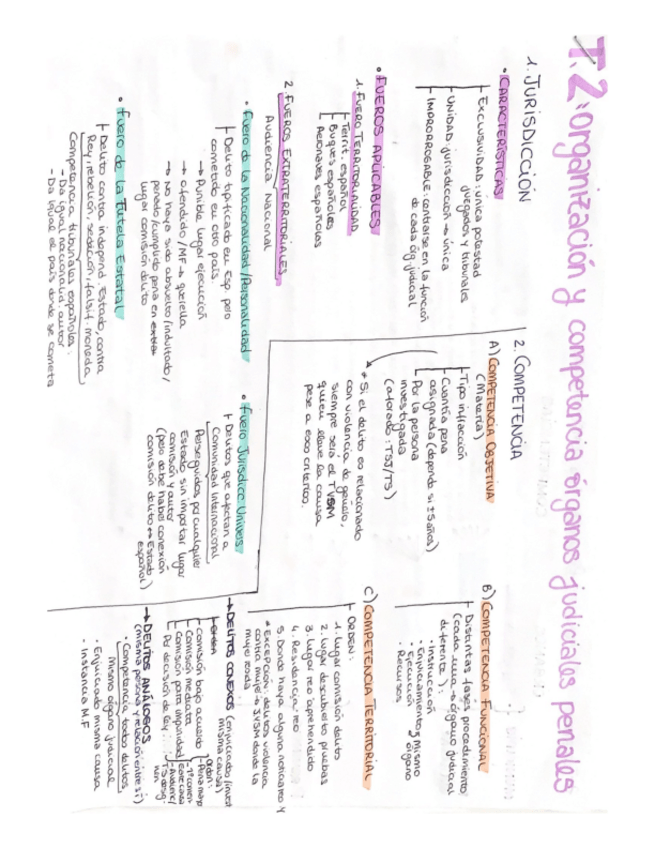 T.2: Organización y competencia órganos judiciales penales
1. JURISDICCIÓN
• CARACTERÍSTICAS
EXCLUSIVIDAD: única potestad
juzgados y tribunales
UNIDAD jurisdicción → única
IMPRORROGABLE: centrarse en la función
de cada órg. judicial
• FUEROS APLICABLES
1. FUERO TERRITORIALIDAD
Territ. español
Buques españoles
Aeronaves españolas
2. FUEROS EXTRATERRITORIALES
Audiencia Nacional
• Fuero de la Nacionalidad/Personalidad
Delito tipificado en Esp pero
cometido en otro país.
→ Punible lugar ejecución
→ ofendido/MF → querella
→ no haya sido absuelto/indultado/
penado/cumplido pena en
lugar comisión delito
• Fuero de la Tutela Estatal
Delito contra independ. Estado, contra
Rey, rebelión, sedición, falsif. moneda
Competencia tribunales españoles.
- Da igual nacionalid. autor
- Da igual el país donde se cometa
• Fuero Jurisdicc Univers
Delitos que afectan a
Comunidad Internacional
Perseguidos por cualquier
Estado sin importar lugar
comisión y autor
(pero debe haber conexión
comisión delito ↔ Estado
español)
2. COMPETENCIA
A) COMPETENCIA OBJETIVA
(Materia)
Tipo infracción
Cuantía pena
asignada (depende si ±5años)
Por la persona
investigada
(aforado: TSJ/TS)
* Si el delito es relacionado
con violencia de género,
siempre será el TVSM
quien lleve la causa
pese a esos criterios.
B) COMPETENCIA FUNCIONAL
Distintas fases procedimiento
(cada una → órgano judicial
diferente):
• Instrucción
• Enjuiciamiento } mismo
• Ejecución } órgano
• Recursos
C) COMPETENCIA TERRITORIAL
ORDEN:
1. lugar comisión delito
2. lugar descubierto pruebas
3. lugar reo aprehendido
4. Residencia reo
5. Donde haya alguna noticia reo y
* EXCEPCIÓN: delitos violencia
contra mujer → JVSM donde la
mujer resida
→ DELITOS CONEXOS (enjuiciados/invest
misma causa)
Comisión bajo acuerdo
Comisión mediata
Comisión para impunidad
Por decisión de ley
Orden:
- Pena mayo
→ DELITOS ANÁLOGOS
(misma persona y relación entre sí)
• Competencia todos delitos
mismo órgano judicial
• Enjuiciado misma causa
• Instancia M.F